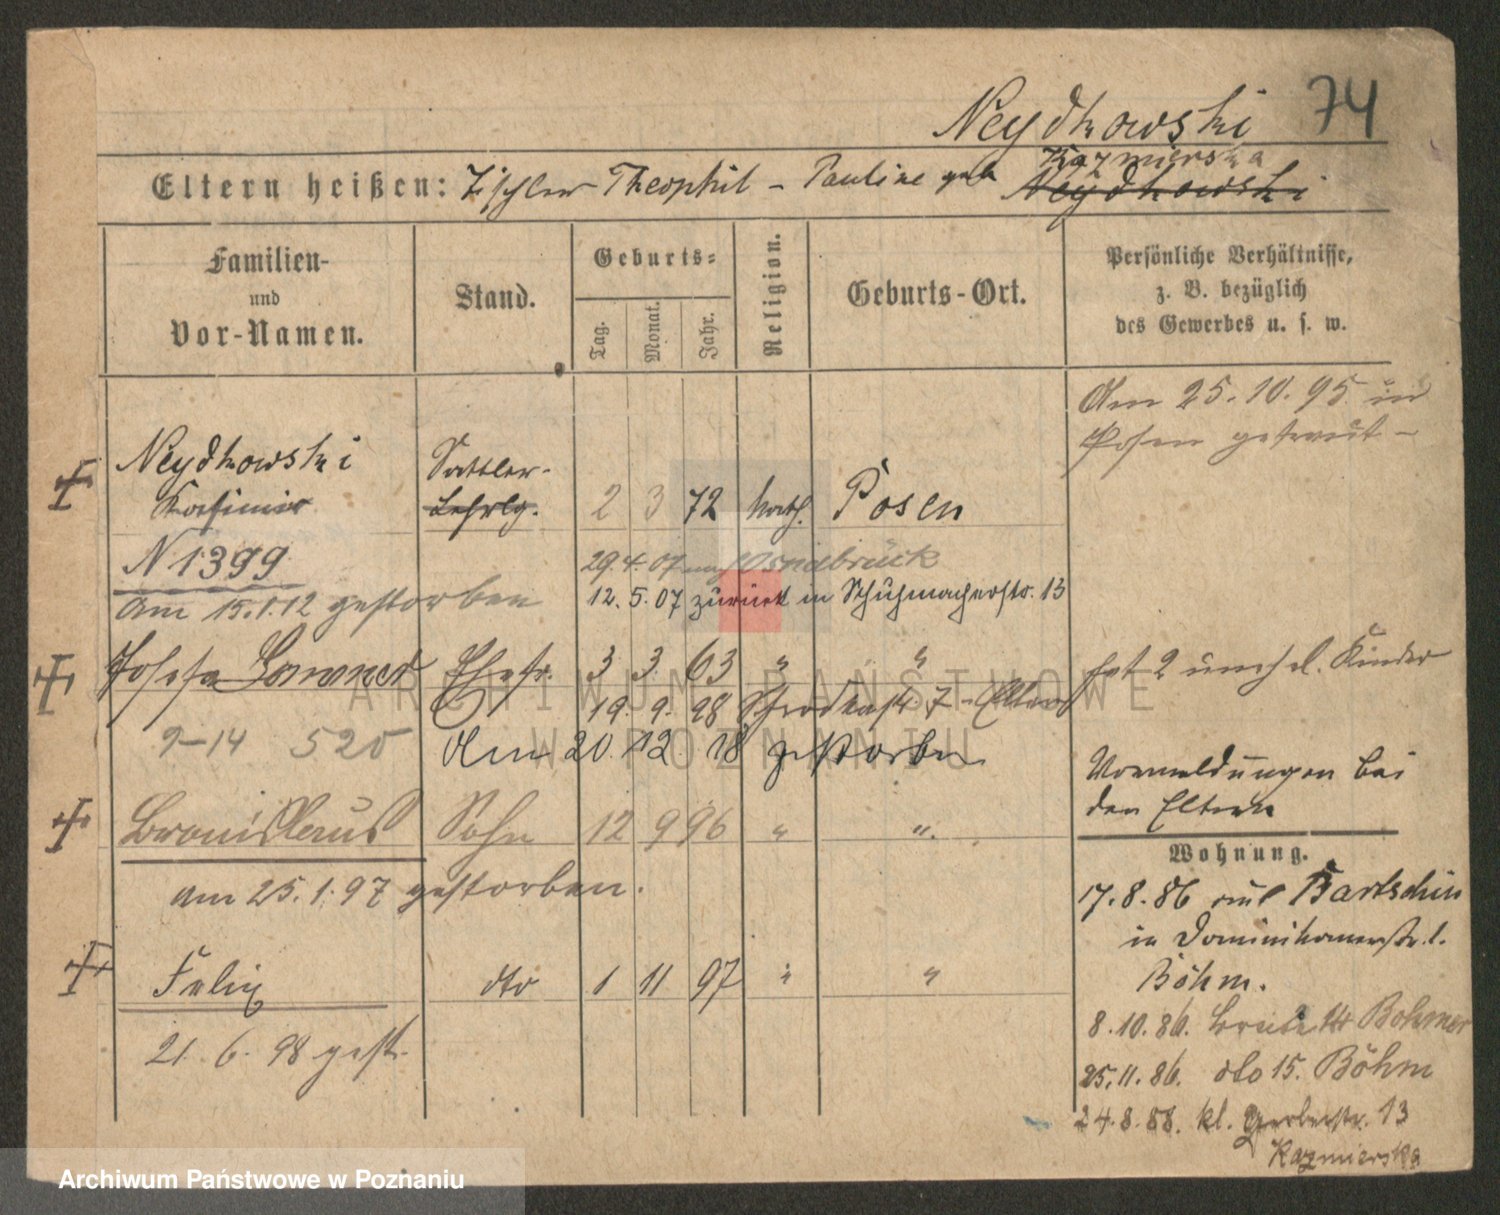 74
Neydkowski
Kazmierska
Eltern heißen: Tischler Theophil – Pauline geb Neydkowski
Familien- und Vor-Namen.
Stand.
Geburts-
Tag.
Monat.
Jahr.
Religion.
Geburts-Ort.
Persönliche Verhältnisse,
z. B. bezüglich
des Gewerbes u. s. w.
Am 25.10.95 in
Posen getraut –
Neydkowski
Kasimir
Sattler-
Lehrlg.
2 3 72 kath. Posen
N 1399
29.4.07 Osnabrück
12.5.07 zurück in Schuhmacherstr. 13
Am 15.1.12 gestorben
Josefa Ehefr. 3 3 63 " "
hat 2 unehel. Kinder
19. 9. 98 7 - Eltern
9-14 520
Am 20. 12. 18 gestorben
Vormeldungen bei
den Eltern
Bronislaus Sohn 12 9 96 " ".
am 25.1.97 gestorben.
Felix dto 1 11 97 " "
21. 6. 98 gest.
Wohnung.
17.8.86 Bartschin
in Dominikanerstr. 1.
Böhm.
8.10.86. Böhmer
25.11.86. dto 15. Böhm
24.8.88. kl. Gerberstr. 13
Kazmierska
ARCHIWUM PAŃSTWOWE
W POZNANIU
Archiwum Państwowe w Poznaniu